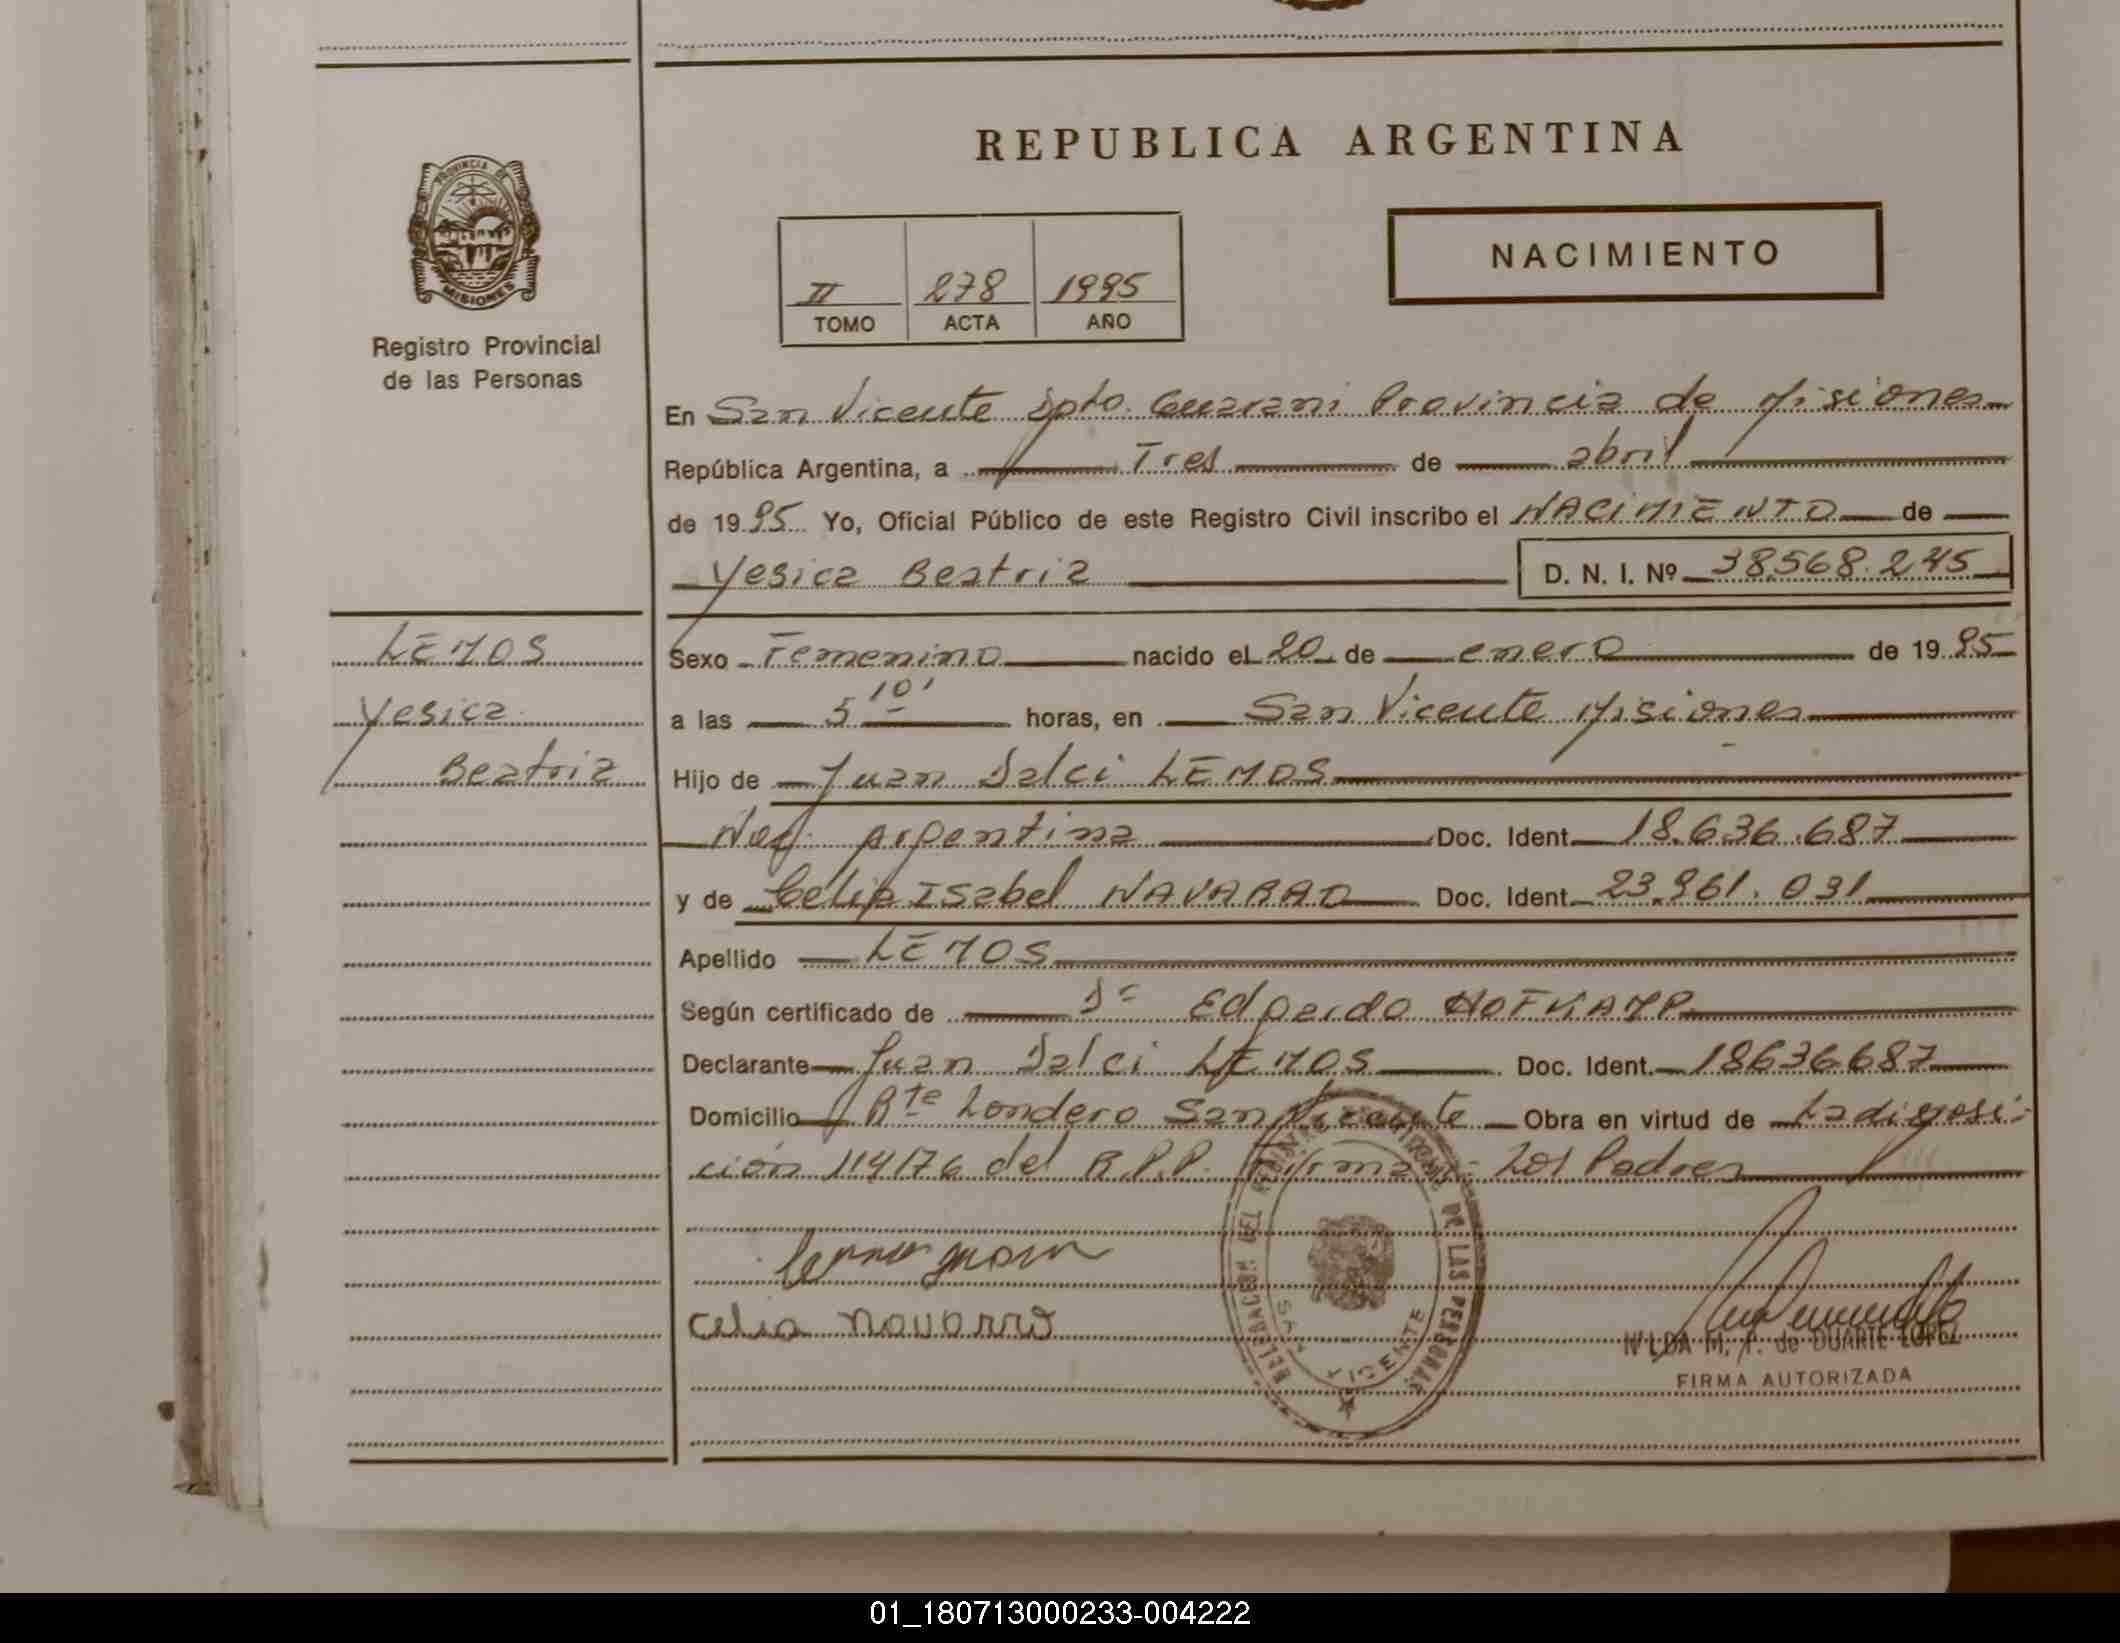 REPUBLICA ARGENTINA
PROVINCIA DE
MISIONES
Registro Provincial
de las Personas
II 278 1995
TOMO ACTA AÑO
NACIMIENTO
En San Vicente Dpto. Guarani Provincia de Misiones
República Argentina, a Tres de abril
de 1995 Yo, Oficial Público de este Registro Civil inscribo el NACIMIENTO de
Yesica Beatriz D. N. I. Nº 38.568.245
LEMOS
Yesica
Beatriz
Sexo Femenino nacido el 20 de enero de 1995
a las 5 10' horas, en San Vicente Misiones
Hijo de Juan Dalci LEMOS
Nac. Argentina Doc. Ident. 18.636.687
y de Celia Isabel NAVARRO Doc. Ident. 23.961.031
Apellido LEMOS
Según certificado de Dr Edgardo HOFKAMP
Declarante Juan Dalci LEMOS Doc. Ident. 18636687
Domicilio Rte Londero San Vicente Obra en virtud de La disposi-
ción 114/76 del R.P.P. Firman: Los Padres
celia navarro
DELEGACION DEL REGISTRO PROVINCIAL DE LAS PERSONAS
SAN VICENTE
NILDA M. P. de DUARTE LOPEZ
FIRMA AUTORIZADA
01_180713000233-004222